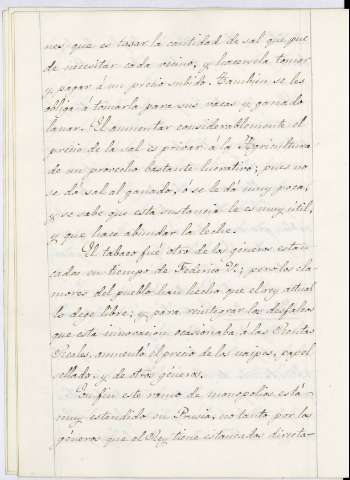 nes, que es tasar la cantidad de sal que pue
de necesitar cada vecino, y hacersela tomar
y pagar á un precio subido. Tambien se les
obliga á tomarla para sus vacas y ganado
lanar. El aumentar considerablemente el
precio de la sal es privar á la Agricultura
de un provecho bastante lucrativo; pues no
se dá sal al ganado, ó se le dá muy poca,
y se sabe que esta sustancia le es muy útil,
y que hace abundar la leche.
El tabaco fué otro de los géneros estan
cados en tiempo de Federico II; pero los cla
mores del pueblo han hecho que el rey actual
lo deje libre; y para reintegrar los desfalcos
que esta innovacion ocasionaba á las Rentas
Reales, aumentó el precio de los naipes, papel
sellado, y de otros géneros.
En fin este ramo de monopolios está
muy estendido en Prusia, no tanto por los
géneros que el Rey tiene estancados directa-